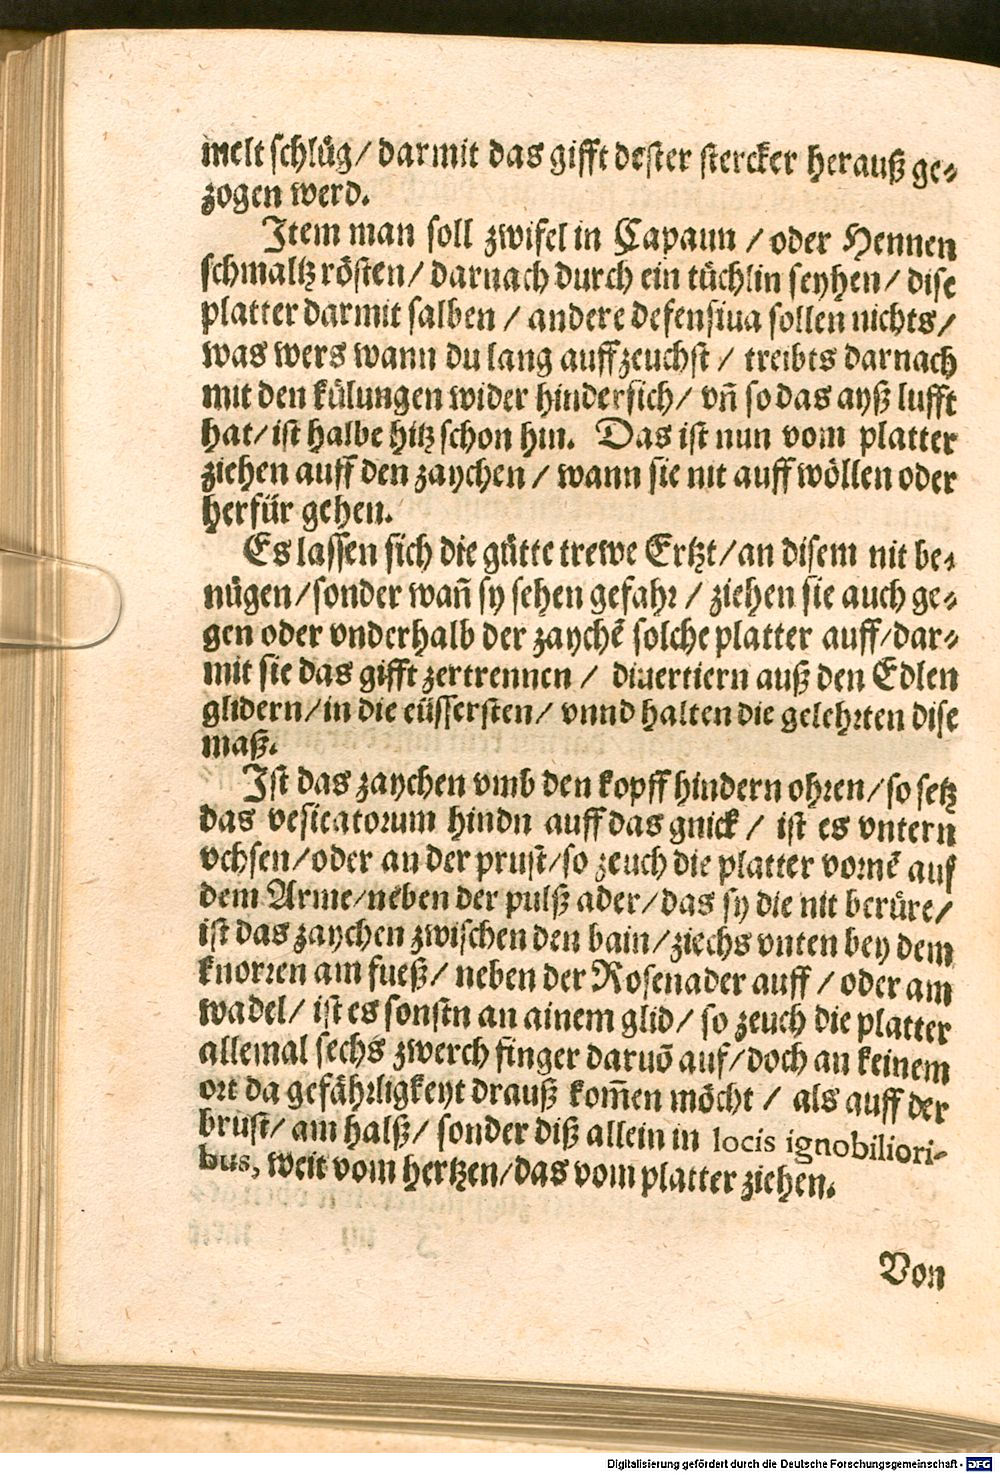 melt schlüg/ darmit das gifft dester stercker herauß ge-
zogen werd.
Item man soll zwifel in Capaun / oder Hennen
schmaltz rösten/ darnach durch ein tüchlin seyhen/ dise
platter darmit salben / andere defensiua sollen nichts/
was wers wann du lang auffzeuchst / treibts darnach
mit den külungen wider hindersich/ vñ so das ayß lufft
hat/ ist halbe hitz schon hin. Das ist nun vom platter
ziehen auff den zaychen / wann sie nit auff wöllen oder
herfür gehen.
Es lassen sich die gütte trewe Ertzt/ an disem nit be-
nügen/ sonder wañ sy sehen gefahr / ziehen sie auch ge-
gen oder vnderhalb der zaychẽ solche platter auff/ dar-
mit sie das gifft zertrennen / diuertiern auß den Edlen
glidern/ in die eüssersten/ vnnd halten die gelehrten dise
maß.
Ist das zaychen vmb den kopff hindern ohren/ so setz
das vesicatorum hindn auff das gnick / ist es vntern
vchsen/ oder an der prust/ so zeuch die platter vornẽ auf
dem Arme/ neben der pulß ader/ das sy die nit berüre/
ist das zaychen zwischen den bain/ ziechs vnten bey dem
knorren am fueß/ neben der Rosenader auff / oder am
wadel/ ist es sonstn an ainem glid/ so zeuch die platter
allemal sechs zwerch finger daruõ auf/ doch an keinem
ort da gefährligkeyt drauß kom̃en möcht / als auff der
brust/ am halß/ sonder diß allein in locis ignobiliori-
bus, weit vom hertzen/ das vom platter ziehen.
Von
Digitalisierung gefördert durch die Deutsche Forschungsgemeinschaft - DFG